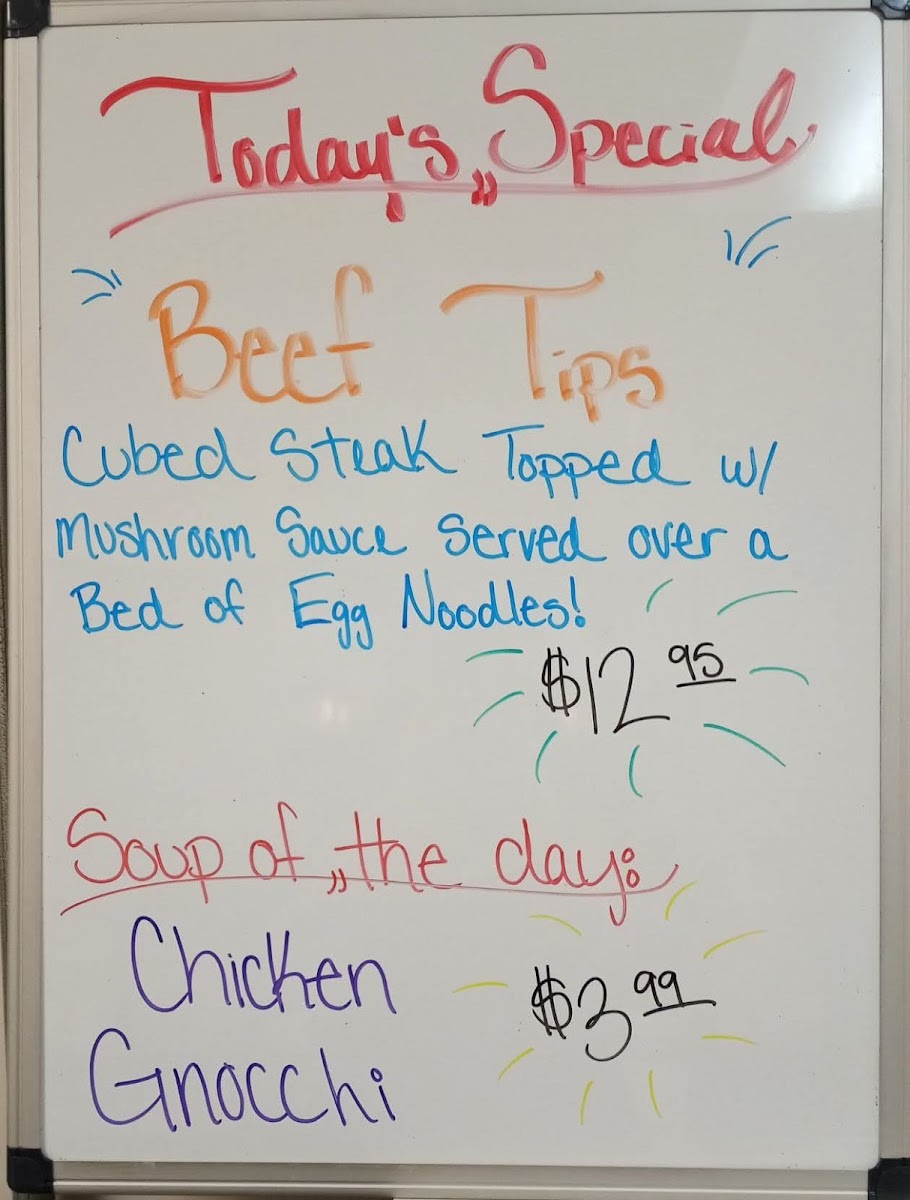 Today's Special
Beef Tips
Cubed Steak Topped w/
Mushroom Sauce Served over a
Bed of Egg Noodles!
$12 95
Soup of the day:
Chicken
$3 99
Gnocchi